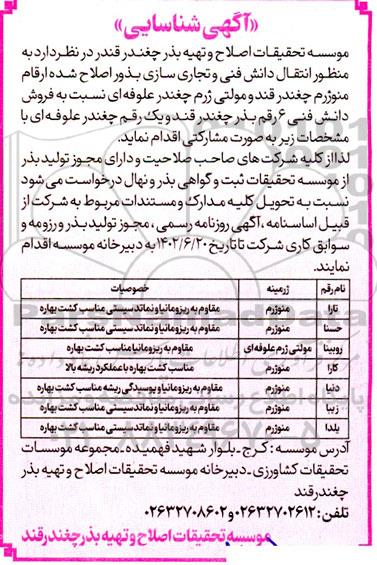 «آگهی شناسایی»
موسسه تحقیقات اصلاح و تهیه بذر چغندر قندر در نظر دارد به
منظور انتقال دانش فنی و تجاری سازی بذور اصلاح شده ارقام
منوژرم چغندر قند و مولتی ژرم چغندر علوفه ای نسبت به فروش
دانش فنی ۶ رقم بذر چغندر قند و یک رقم چغندر علوفه ای با
مشخصات زیر به صورت مشارکتی اقدام نماید.
لذا از کلیه شرکت های صاحب صلاحیت و دارای مجوز تولید بذر
از موسسه تحقیقات ثبت و گواهی بذر و نهال درخواست می شود
نسبت به تحویل کلیه مدارک و مستندات مربوط به شرکت از
قبیل اساسنامه ، آگهی روزنامه رسمی ، مجوز تولید بذر و رزومه و
سوابق کاری شرکت تا تاریخ ۱۴۰۲/۶/۲۰ به دبیرخانه موسسه اقدام
نمایند.
نام رقم ژرمینه خصوصیات
تارا منوژرم مقاوم به ریزومانیا و نماتد سیستی مناسب کشت بهاره
حسنا منوژرم مقاوم به ریزومانیا و نماتد سیستی مناسب کشت بهاره
روبینا مولتی ژرم علوفه ای مقاوم به ریزومانیا مناسب کشت بهاره
کارا منوژرم مناسب کشت بهاره با عملکرد ریشه بالا
دنیا منوژرم مقاوم به ریزومانیا و پوسیدگی ریشه مناسب کشت بهاره
زیبا منوژرم مقاوم به ریزومانیا و نماتد سیستی مناسب کشت بهاره
یلدا منوژرم مقاوم به ریزومانیا و نماتد سیستی مناسب کشت بهاره
آدرس موسسه : کرج - بلوار شهید فهمیده - مجموعه موسسات
تحقیقات کشاورزی - دبیرخانه موسسه تحقیقات اصلاح و تهیه بذر
چغندر قند
تلفن : ۰۲۶۳۲۷۰۲۶۱۲ و ۰۲۶۳۲۷۰۸۶۰۲
موسسه تحقیقات اصلاح و تهیه بذر چغندر قند